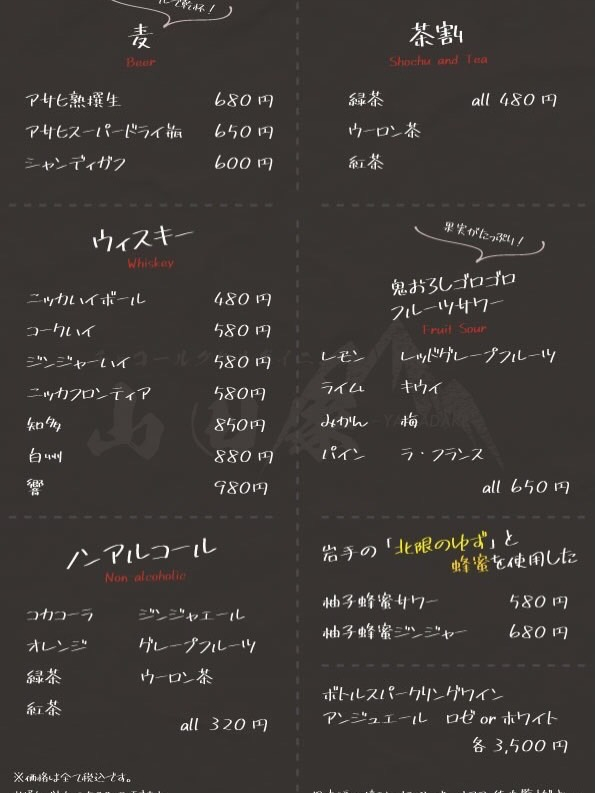 麦
Beer
アサヒ熟撰生 680円
アサヒスーパードライ瓶 650円
シャンディガフ 600円
茶割
Shochu and Tea
緑茶 all 480円
ウーロン茶
紅茶
ウィスキー
Whiskey
ニッカハイボール 480円
コークハイ 580円
ジンジャーハイ 580円
ニッカフロンティア 580円
知多 850円
白州 880円
響 980円
果実がたっぷり!
鬼おろしゴロゴロ
フルーツサワー
Fruit Sour
レモン レッドグレープフルーツ
ライム キウイ
みかん 梅
パイン ラ・フランス
all 650円
ノンアルコール
Non alcoholic
コカコーラ ジンジャエール
オレンジ グレープフルーツ
緑茶 ウーロン茶
紅茶
all 320円
岩手の「北限のゆず」と
蜂蜜を使用した
柚子蜂蜜サワー 580円
柚子蜂蜜ジンジャー 680円
ボトルスパークリングワイン
アンジュエール ロゼ or ホワイト
各 3,500円
※価格は全て税込です。